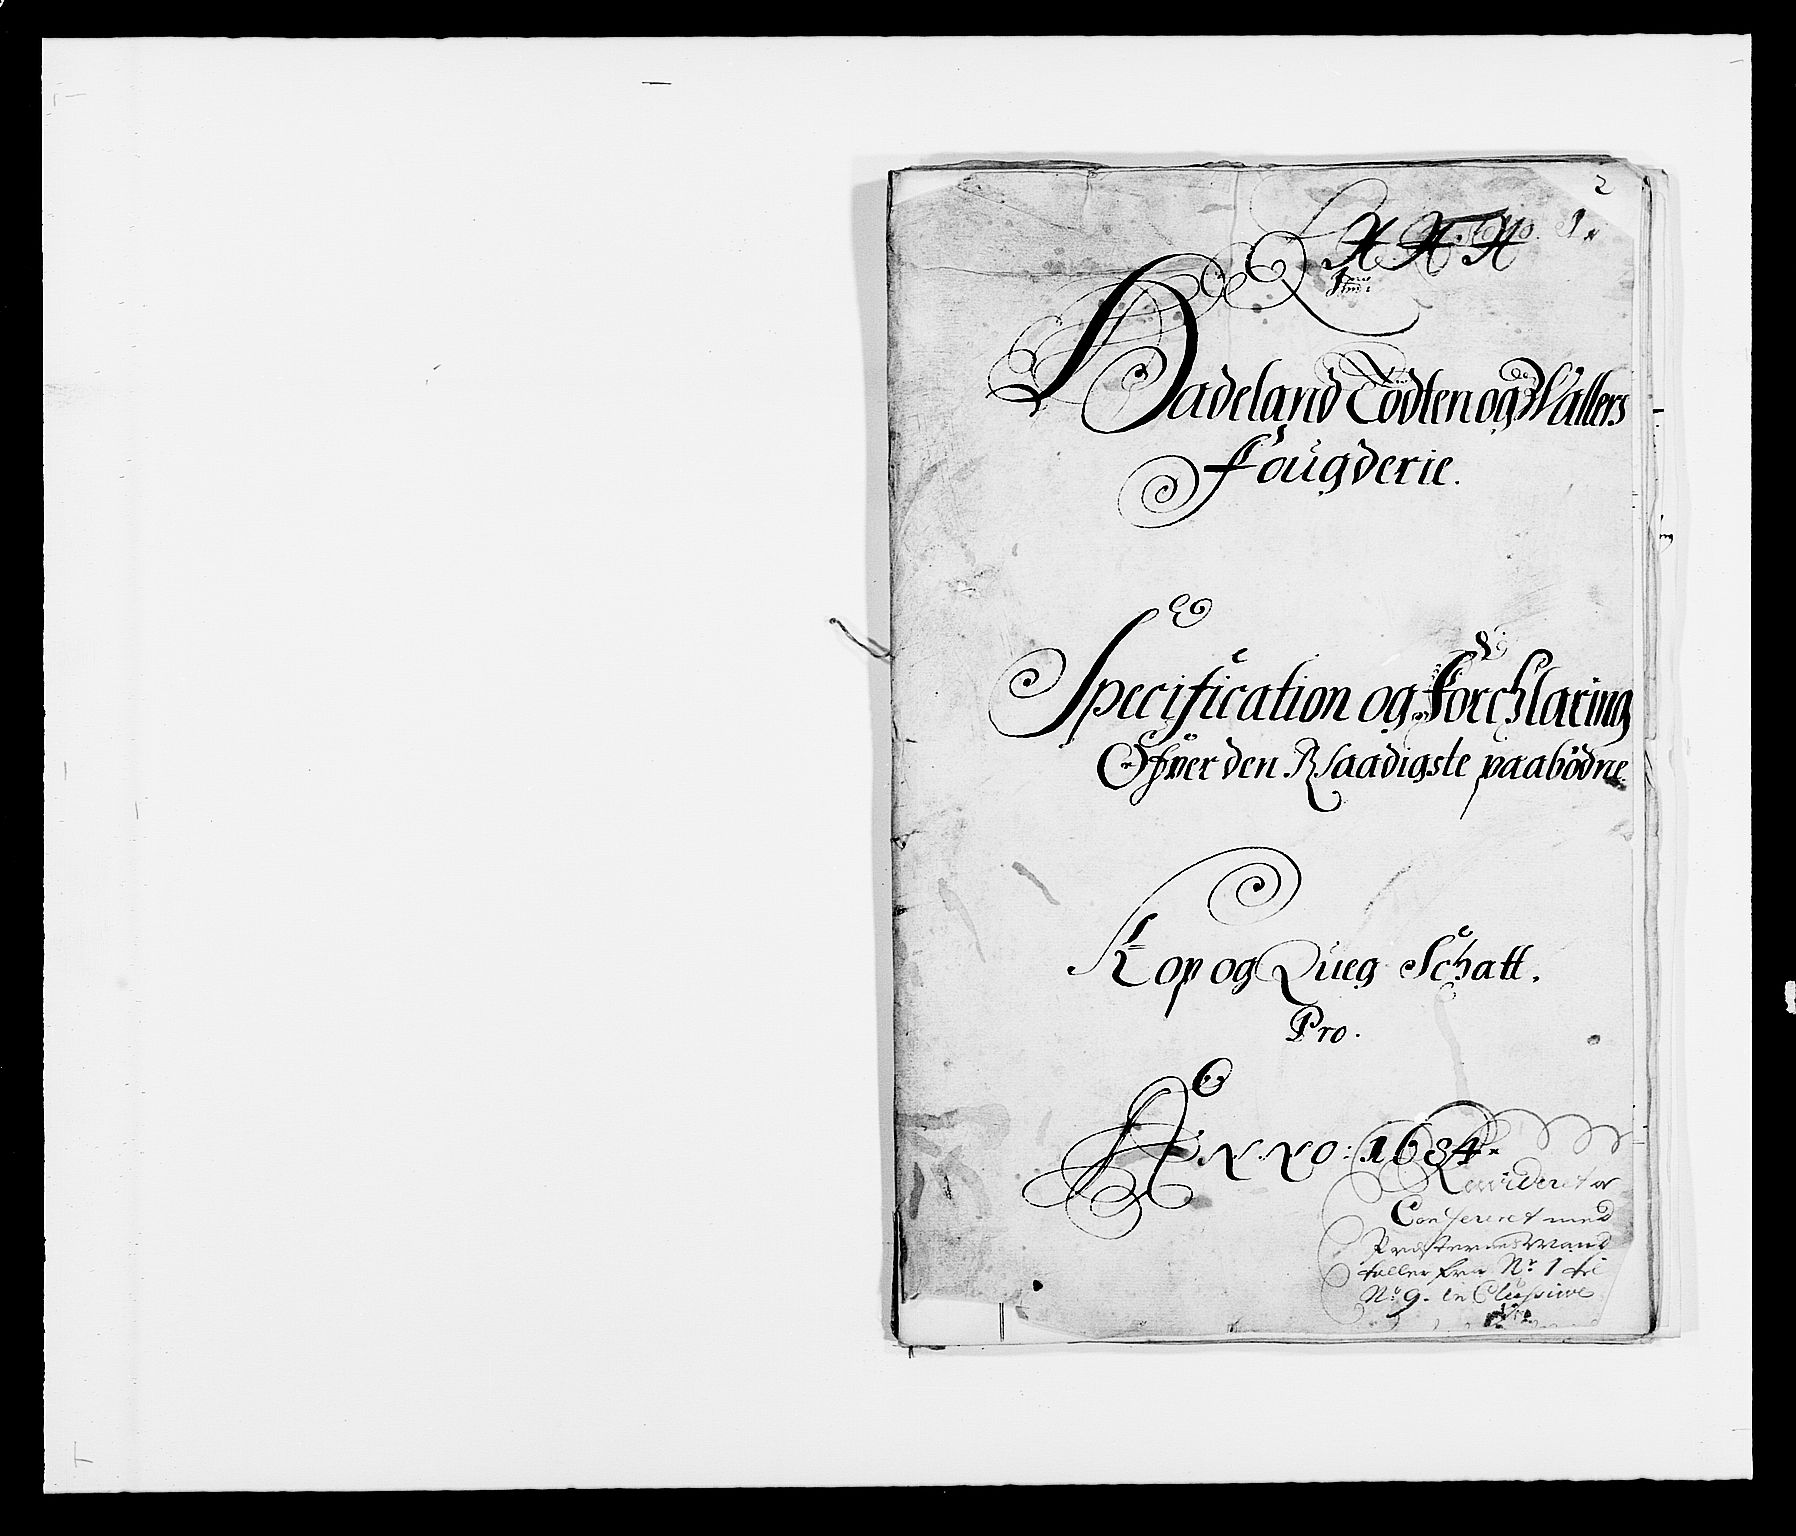 2
No. 1.
Hadeland Tödten og Wallers
Fougderie.
Specification og Forchlaring
Öfver den Naadigste paabödne
Kop og Queg Schatt.
Pro.
Anno: 1684.
Revideret oc
Confereret med
Præsternes Mand
taller fra No. 1 til
No. 9. inclusive